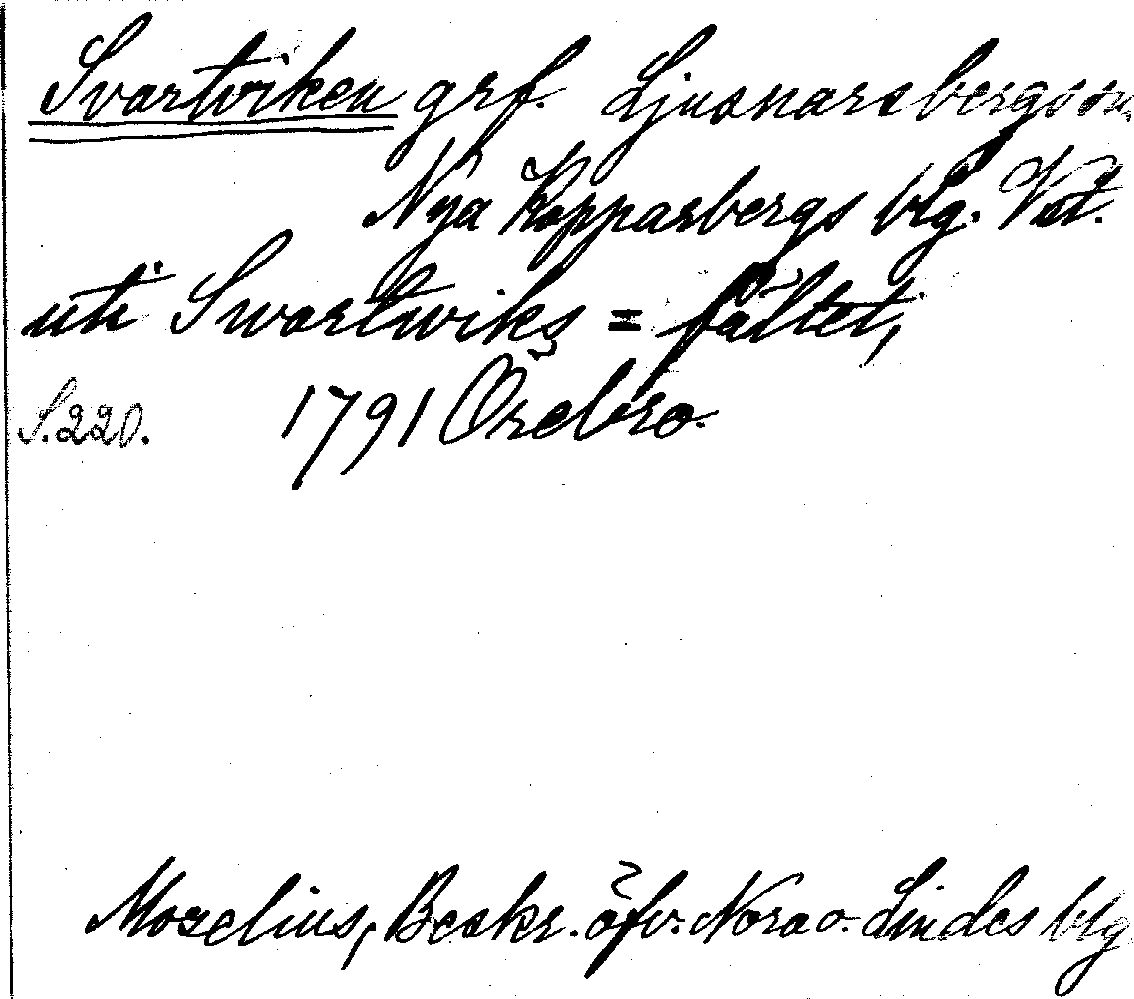 Svartviken grf. Ljusnarsbergs sn.
Nya Kopparbergs blg. Vät.
uti Swartwiks = fältet,
S. 220. 1791 Örebro.
Moselius, Beskr. öfv. Nora o. Lindes blg